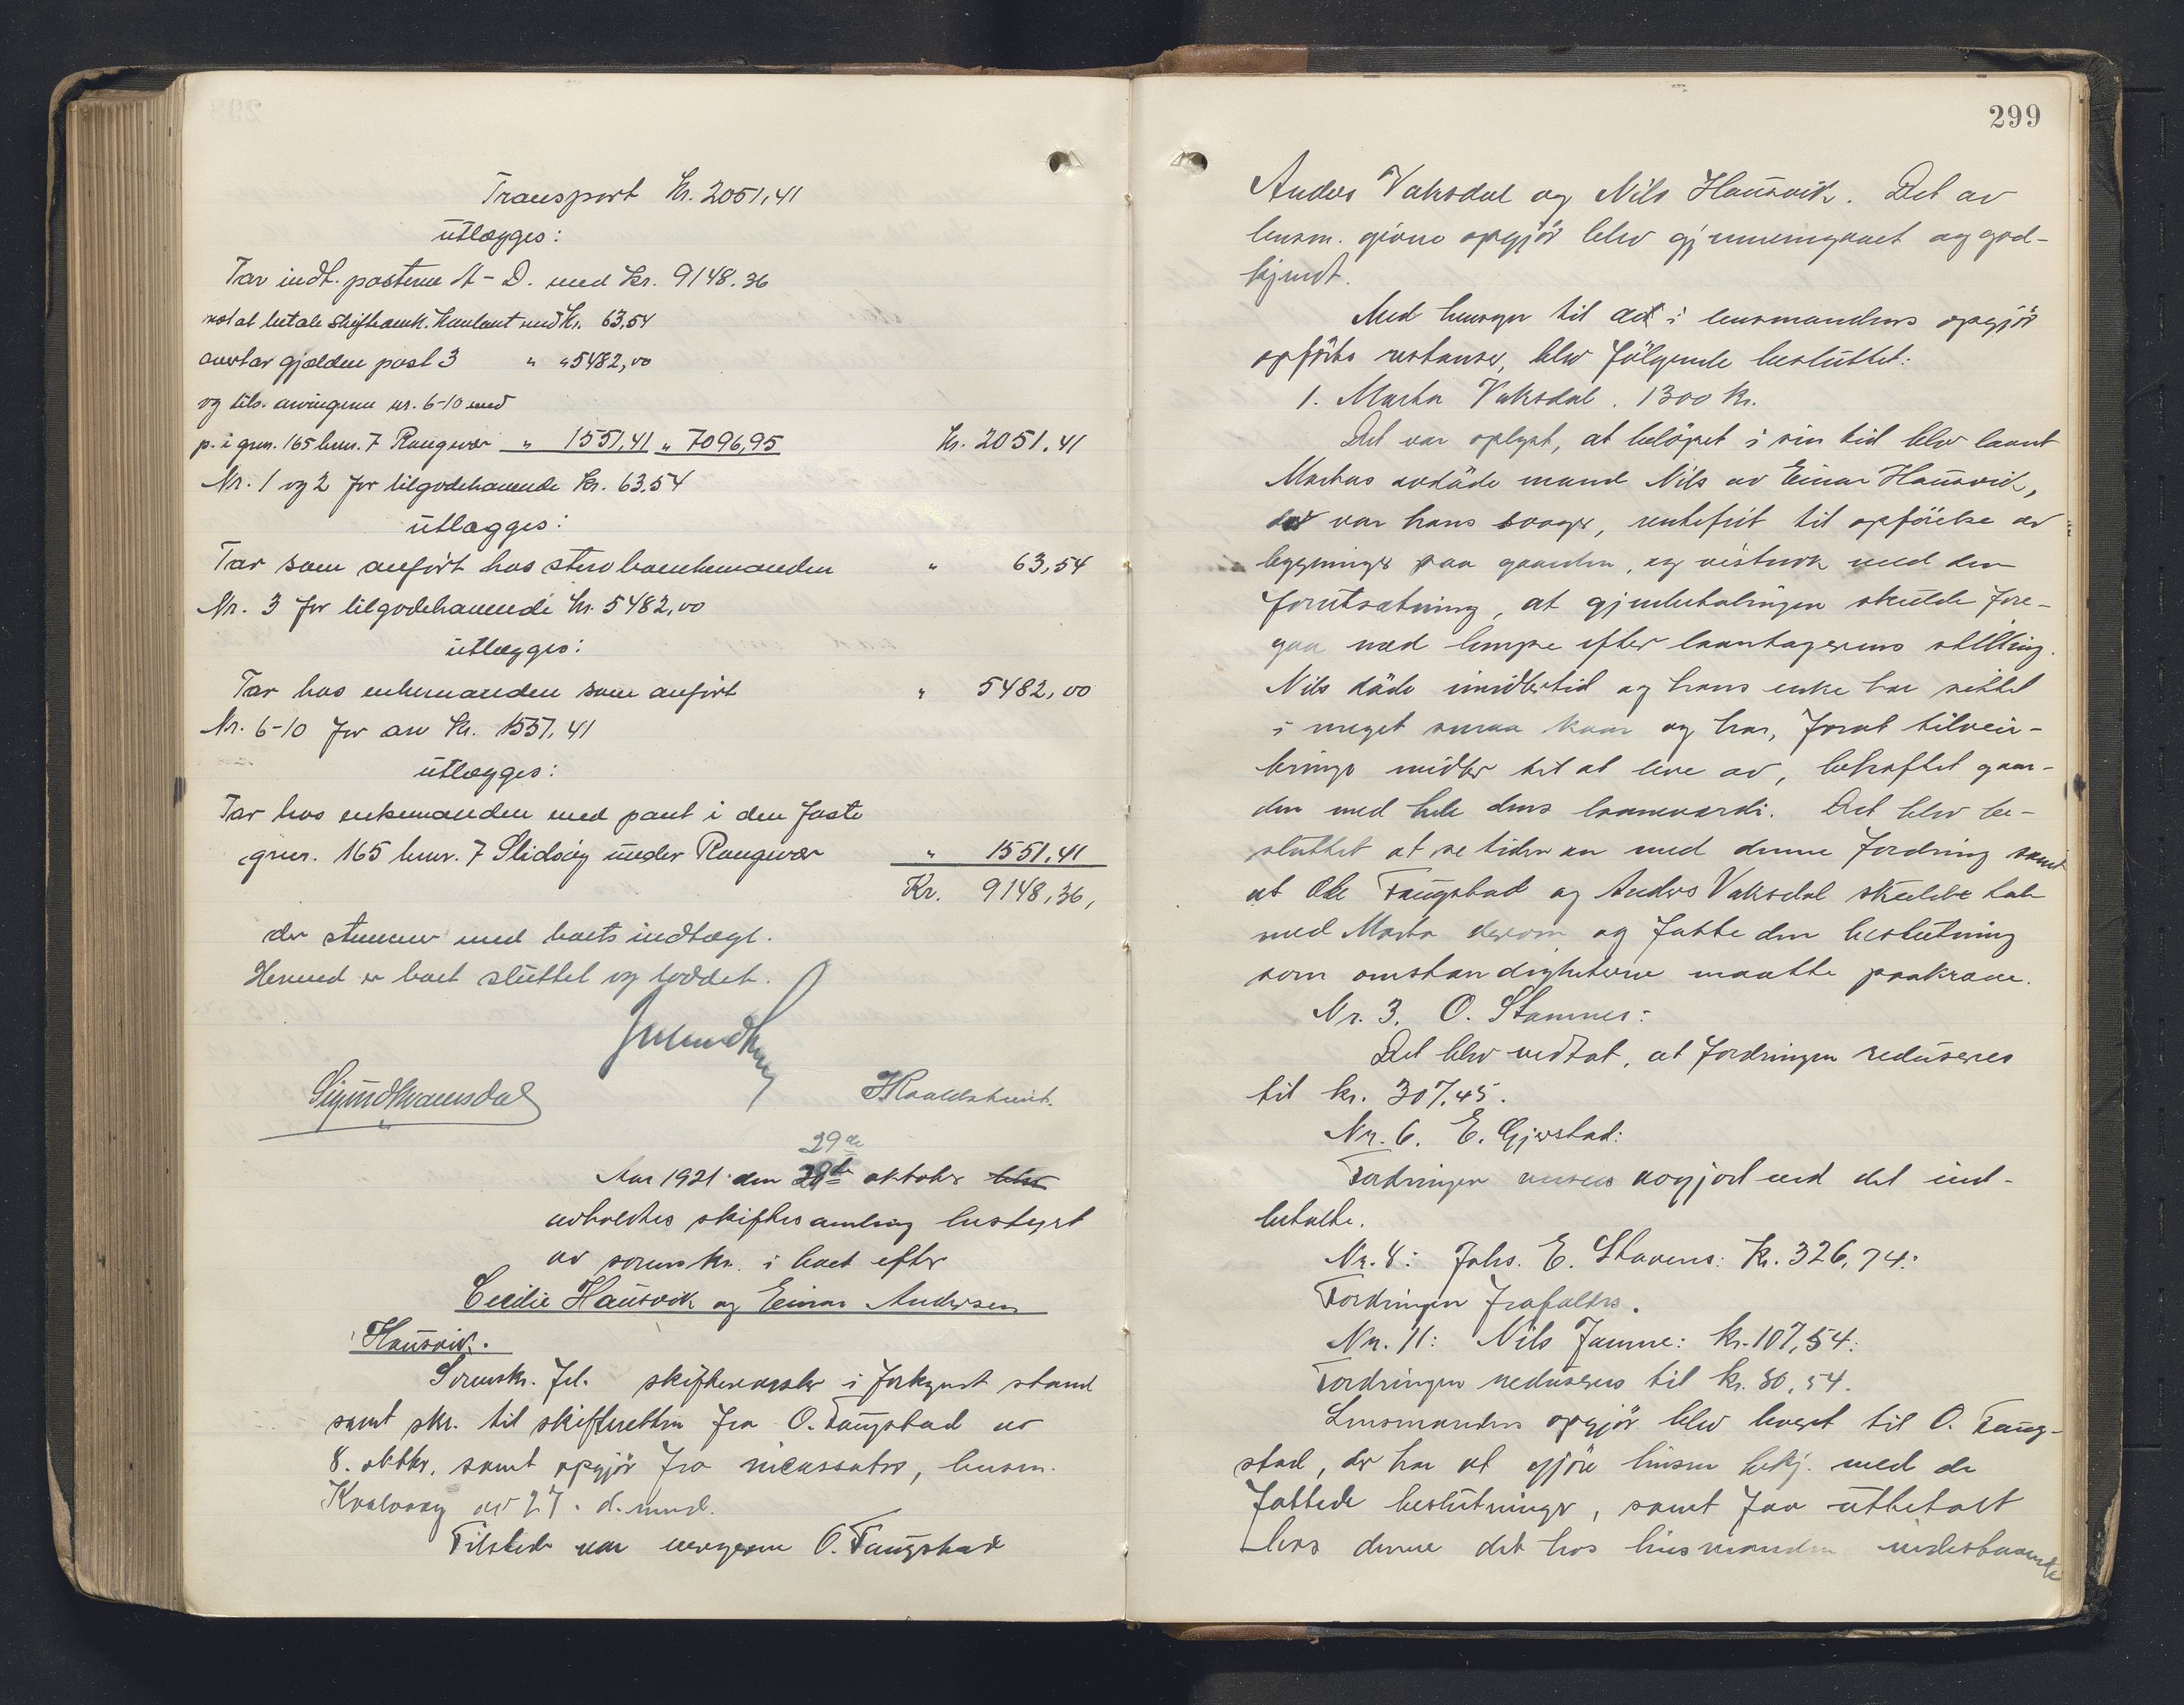 Transport Kr. 2051,41
utlægges:
Tar indt. posterne A - D. med Kr. 9148.36
mot at betale skifteomk. kontant med Kr. 63,54
overtar gjælden post 3 " " 5482,00
og tils. arvingerne nr. 6-10 med
p. i grnr. 165 brnr. 7 Rongevær " 1551,41 " 7096,95 Kr. 2051,41
Nr. 1 og 2 for tilgodehavende Kr. 63,54
utlægges:
Tar som anført hos enkemanden " 63,54
Nr. 3 for tilgodehavende Kr. 5482,00
utlægges:
Tar hos enkemanden som anført " 5482,00
Nr. 6-10 for arv Kr. 1551,41
utlægges:
Tar hos enkemanden med pant i den faste
grnr. 165 brnr. 7 under Rongevær " 1551,41
Kr. 9148,36,
der stemmer med boets indtægt.
Hermed er boet sluttet og loddet.
29de
Aar 1921 den 29de oktober blev
avholdtes skiftesamling bestyrt
av sorenskr. i boet efter
Cecilie Hausvik og Einar Andersen
Hausvik.
Sorenskr. frl. skiftevarsler i forkynt stand
samt skr. til skifteretten fra O. Faugstad av
8. oktbr. samt opgjör fra incassator, lensm.
av 27. d. mnd.
Tilstede var vergerne O. Faugstad
299
Anders Vaksdal og Nils Hausvik. Det av
lensm. givne opgjör blev gjennemgaaet og god-
kjendt.
Med hensyn til de i lensmandens opgjör
opförte restanser, blev fölgende besluttet:
1. Marta Vaksdal. 1300 kr.
Det var oplyst, at belöpet i sin tid blev laant
Martas avdöde mand Nils av Einar Hausvik,
der var hans svoger, rentefrit til opförelse av
bygninger paa gaarden, og vistnok med den
forutsætning, at gjenbetalingen skulde fore-
gaa med lempe efter laantagerens stilling.
Nils döde imidlertid og hans enke har sittet
i meget smaa kaar og har, forat tilveie-
bringe midler til at leve av, beheftet gaar-
den med hele dens laaneværdi. Det blev be-
sluttet at se tiden an med denne fordring samt
at Ole Faugstad og Anders Vaksdal skulde tale
med Marta derom og fatte den beslutning
som omstændigheterne maatte paakræve.
Nr. 3. O. Stamnes:
Det blev vedtat, at fordringen reduseres
til kr. 307.45.
Nr. 6. E. Gjerstad:
Fordringen ansees avgjort med det ind-
betalte.
Nr. 8: Johs. E. Stavens: Kr. 326,74:
Fordringen frafaldes.
Nr. 11: Nils Jamne: kr. 107,54:
Fordringen reduseres til kr. 80,54.
Lensmandens opgjör blev levert til O. Faug-
stad, der har at gjöre lensm. bekj. med de
fattede beslutninger, samt faa utbetalt
hos denne det hos lensmanden indestaaende